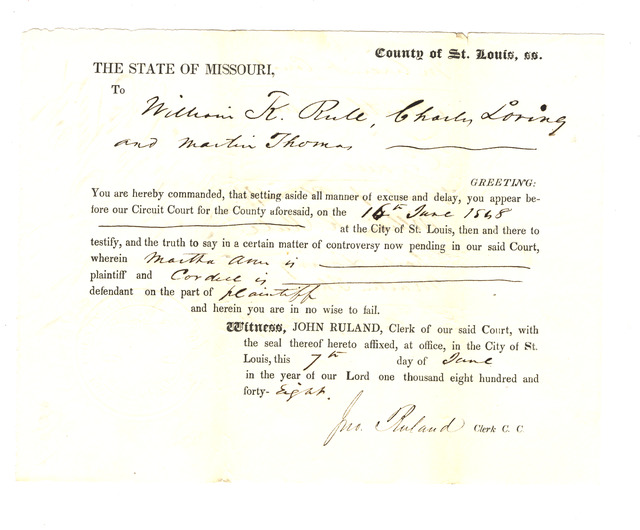 County of St. Louis, ss.
THE STATE OF MISSOURI,
To
William K. Rule, Charles Loring
and Martin Thomas
GREETING:
You are hereby commanded, that setting aside all manner of excuse and delay, you appear be-
fore our Circuit Court for the County aforesaid, on the 16th June 1848
at the City of St. Louis, then and there to
testify, and the truth to say in a certain matter of controversy now pending in our said Court,
wherein Martha Ann is
plaintiff and Cordell is
defendant on the part of plaintiff
and herein you are in no wise to fail.
Witness, JOHN RULAND, Clerk of our said Court, with
the seal thereof hereto affixed, at office, in the City of St.
Louis, this 7th day of June
in the year of our Lord one thousand eight hundred and
forty-Eight.
Jno. Ruland Clerk C. C.